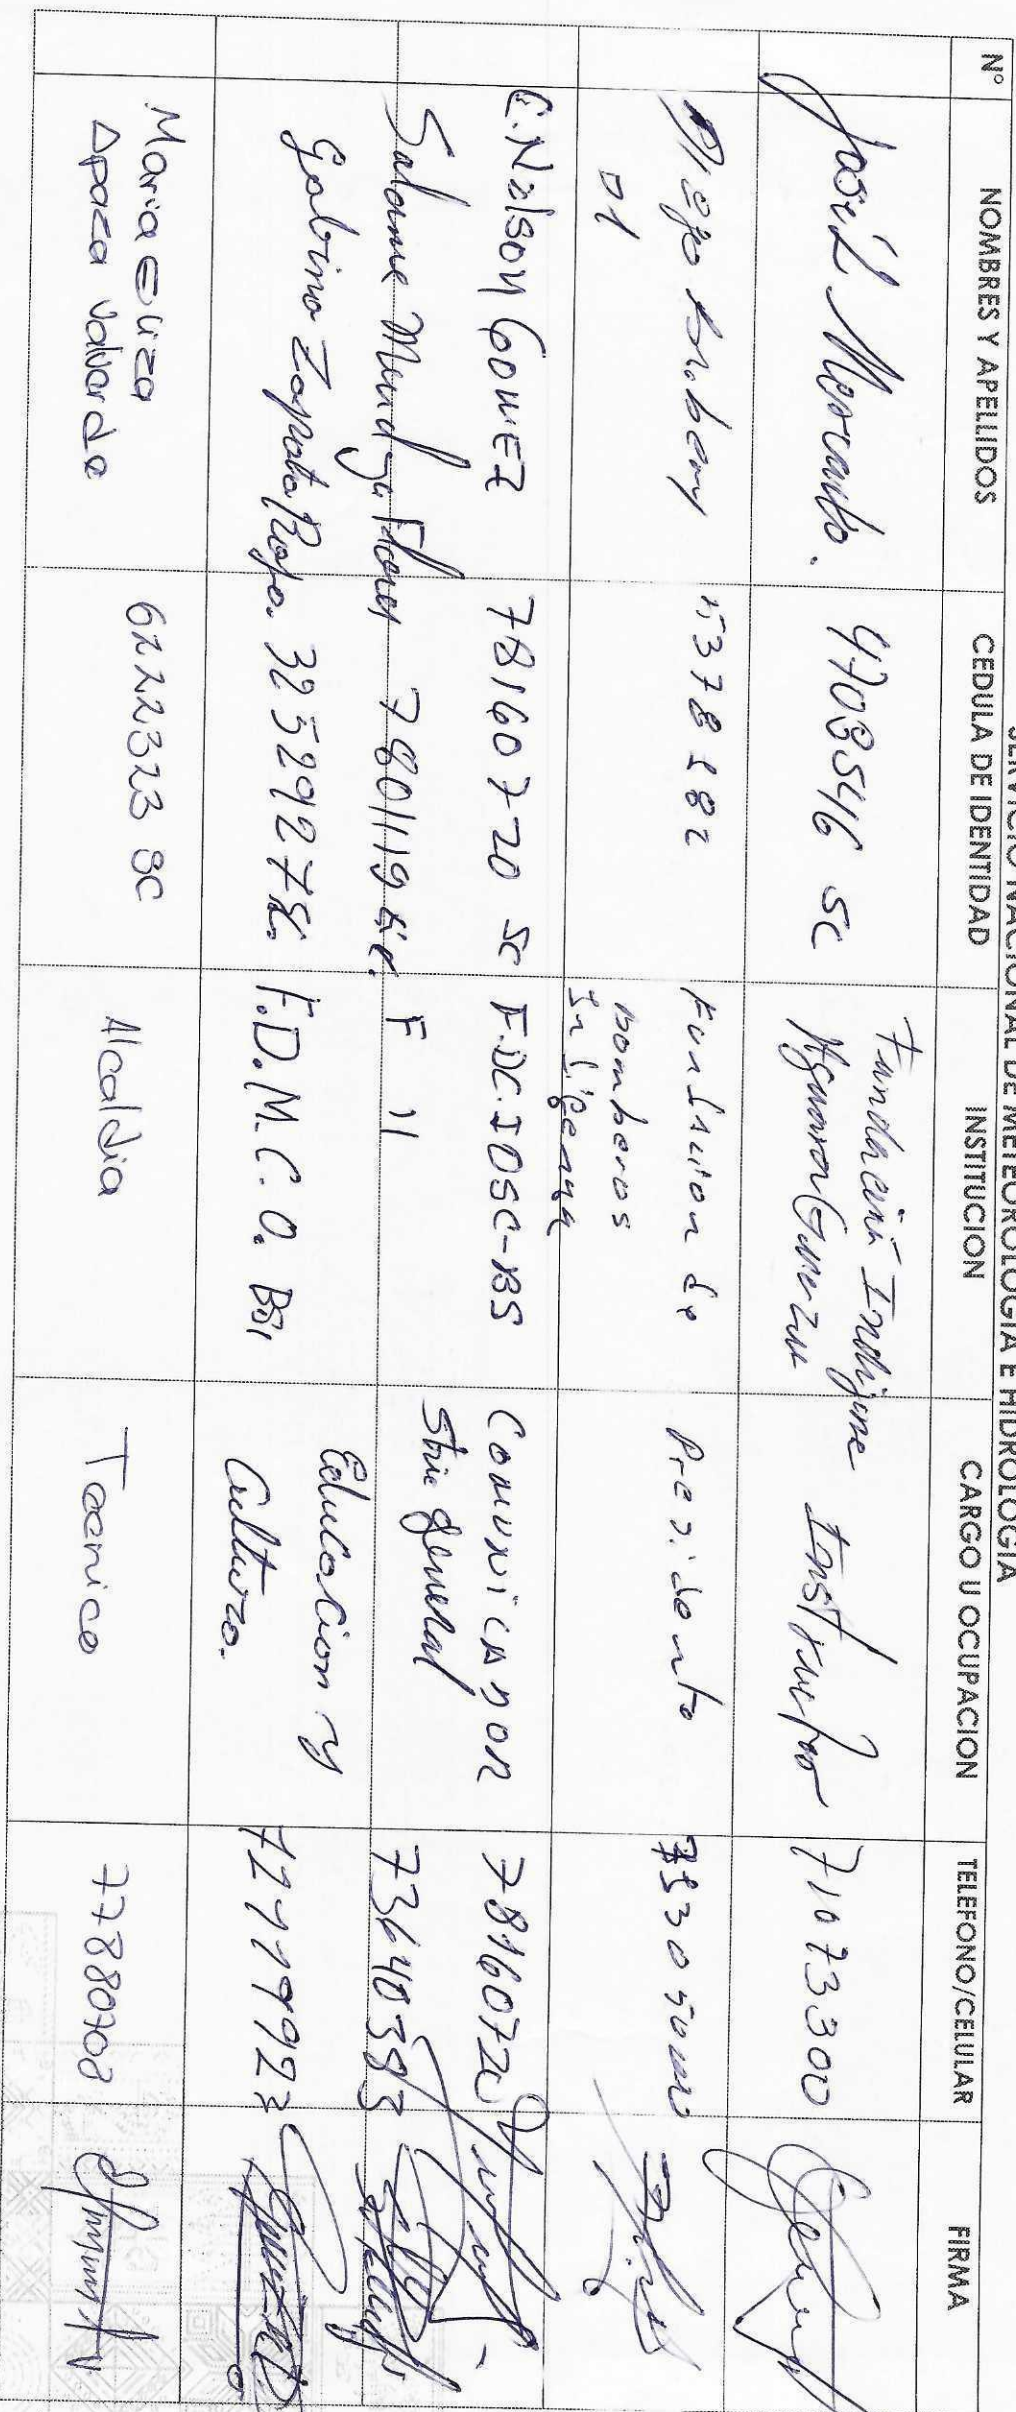 SERVICIO NACIONAL DE METEOROLOGIA E HIDROLOGIA
N° NOMBRES Y APELLIDOS CEDULA DE IDENTIDAD INSTITUCION CARGO U OCUPACION TELEFONO/CELULAR FIRMA
José L Mercado. 4703546 SC Fundación Indijene Instructor 71073300
Diego 5378582 Fundacion de Presidente
01 bomberos
Indigena
E. Nelson GOMEZ 78160720 SC F.DC.IOSC-BS COMUNICADOR 78160720
Salome Mendoza Flores 7801119 F 11 Strio general 73640393
Gabino Zapata Rojo. 3252927SC. F.D.M.C.O. BSI Educacion y Cultura. 71119923
Maria Eliza 6222323 SC Alcaldia Tecnico 77880708
Apaza Valverde